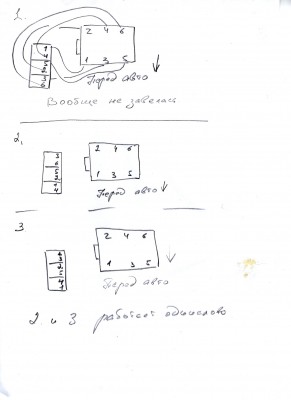 1.
2 4 6
1 3 5
Перед авто
Вообще не завелась
2.
2 4 6
1 3 5
Перед авто
3
2 4 6
1 3 5
Перед авто
2 и 3 работают одинаково